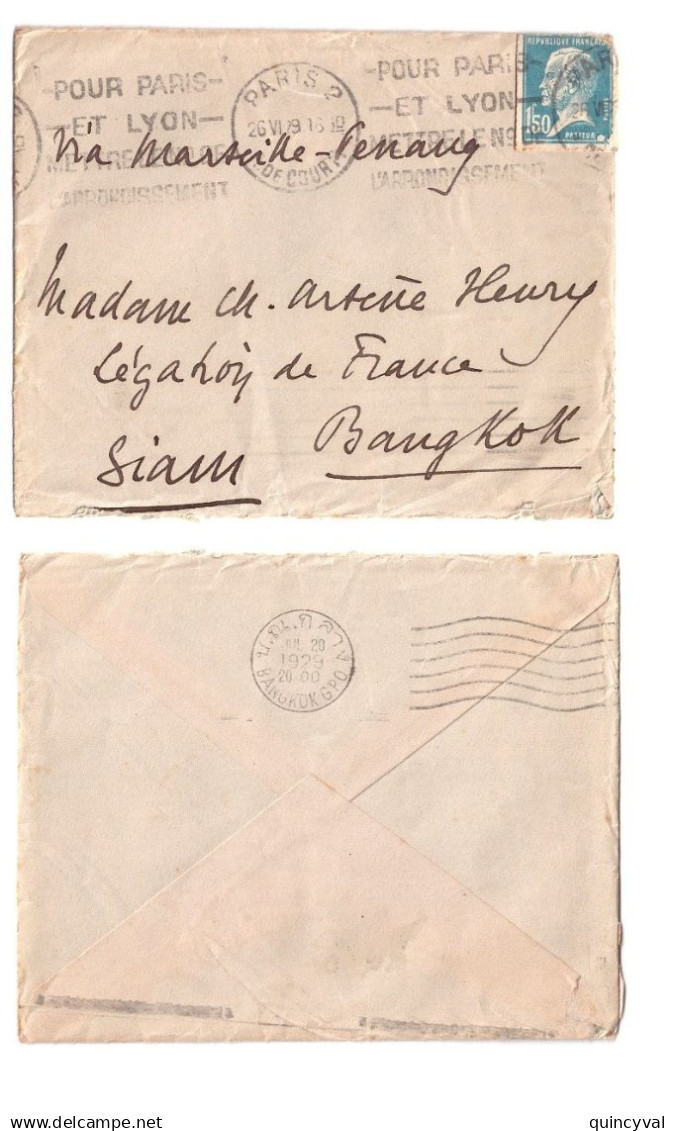 -POUR PARIS-
-ET LYON-
METTRE LE N°
L'ARRONDISSEMENT
PARIS 2
26 VI 29 18
-POUR PARIS-
-ET LYON-
METTRE LE N°
L'ARRONDISSEMENT
REPVBLIQVE FRANÇAISE
1f50
PASTEVR
Via Marseille-Penang
Madame Ch. Arsène Henry
Légation de France
Bangkok
Siam
บ.ถ.น.กลาง
JUL 20
1929
20.00
BANGKOK G.P.O.
quincyval